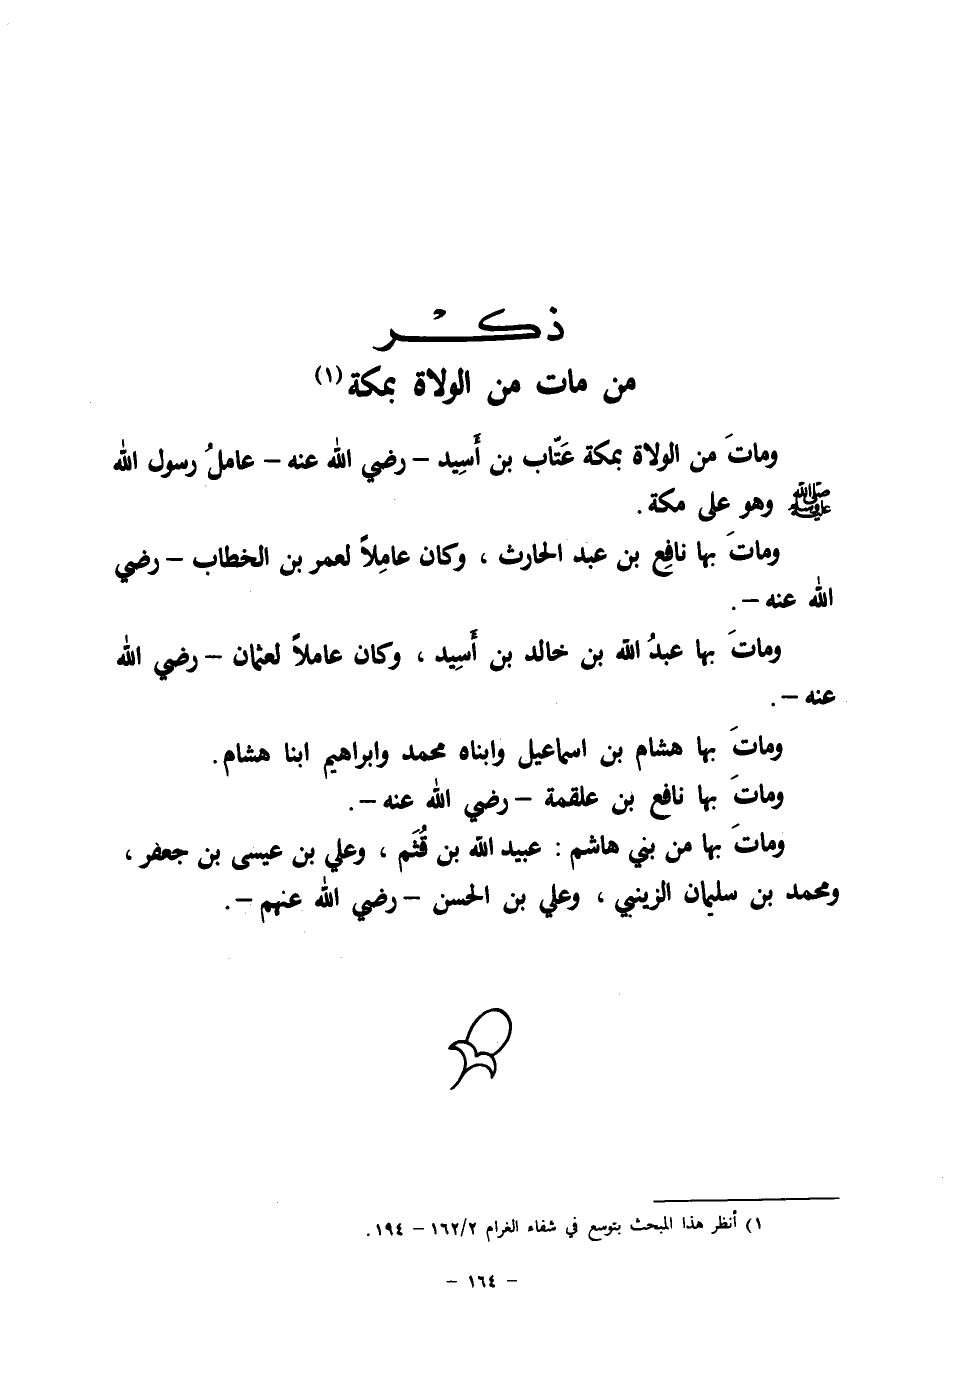 ذكْر
من مات من الولاة بمكة (١)
وماتَ من الولاة بمكة عَتّاب بن أَسِيد – رضي الله عنه – عاملُ رسول الله
ﷺ وهو على مكة .
وماتَ بها نافِع بن عبد الحارث ، وكان عامِلاً لعمر بن الخطاب – رضي
الله عنه – .
وماتَ بها عبدُ الله بن خالد بن أَسِيد ، وكان عاملاً لعثمان – رضي الله
عنه – .
وماتَ بها هشام بن اسماعيل وابناه محمد وابراهيم ابنا هشام .
وماتَ بها نافع بن علقمة – رضي الله عنه – .
وماتَ بها من بني هاشم : عبيد الله بن قُثَم ، وعلي بن عيسى بن جعفر ،
ومحمد بن سليمان الزينبي ، وعلي بن الحسن – رضي الله عنهم – .
١) أنظر هذا المبحث بتوسع في شفاء الغرام ١٦٢/٢ – ١٩٤ .
– ١٦٤ –